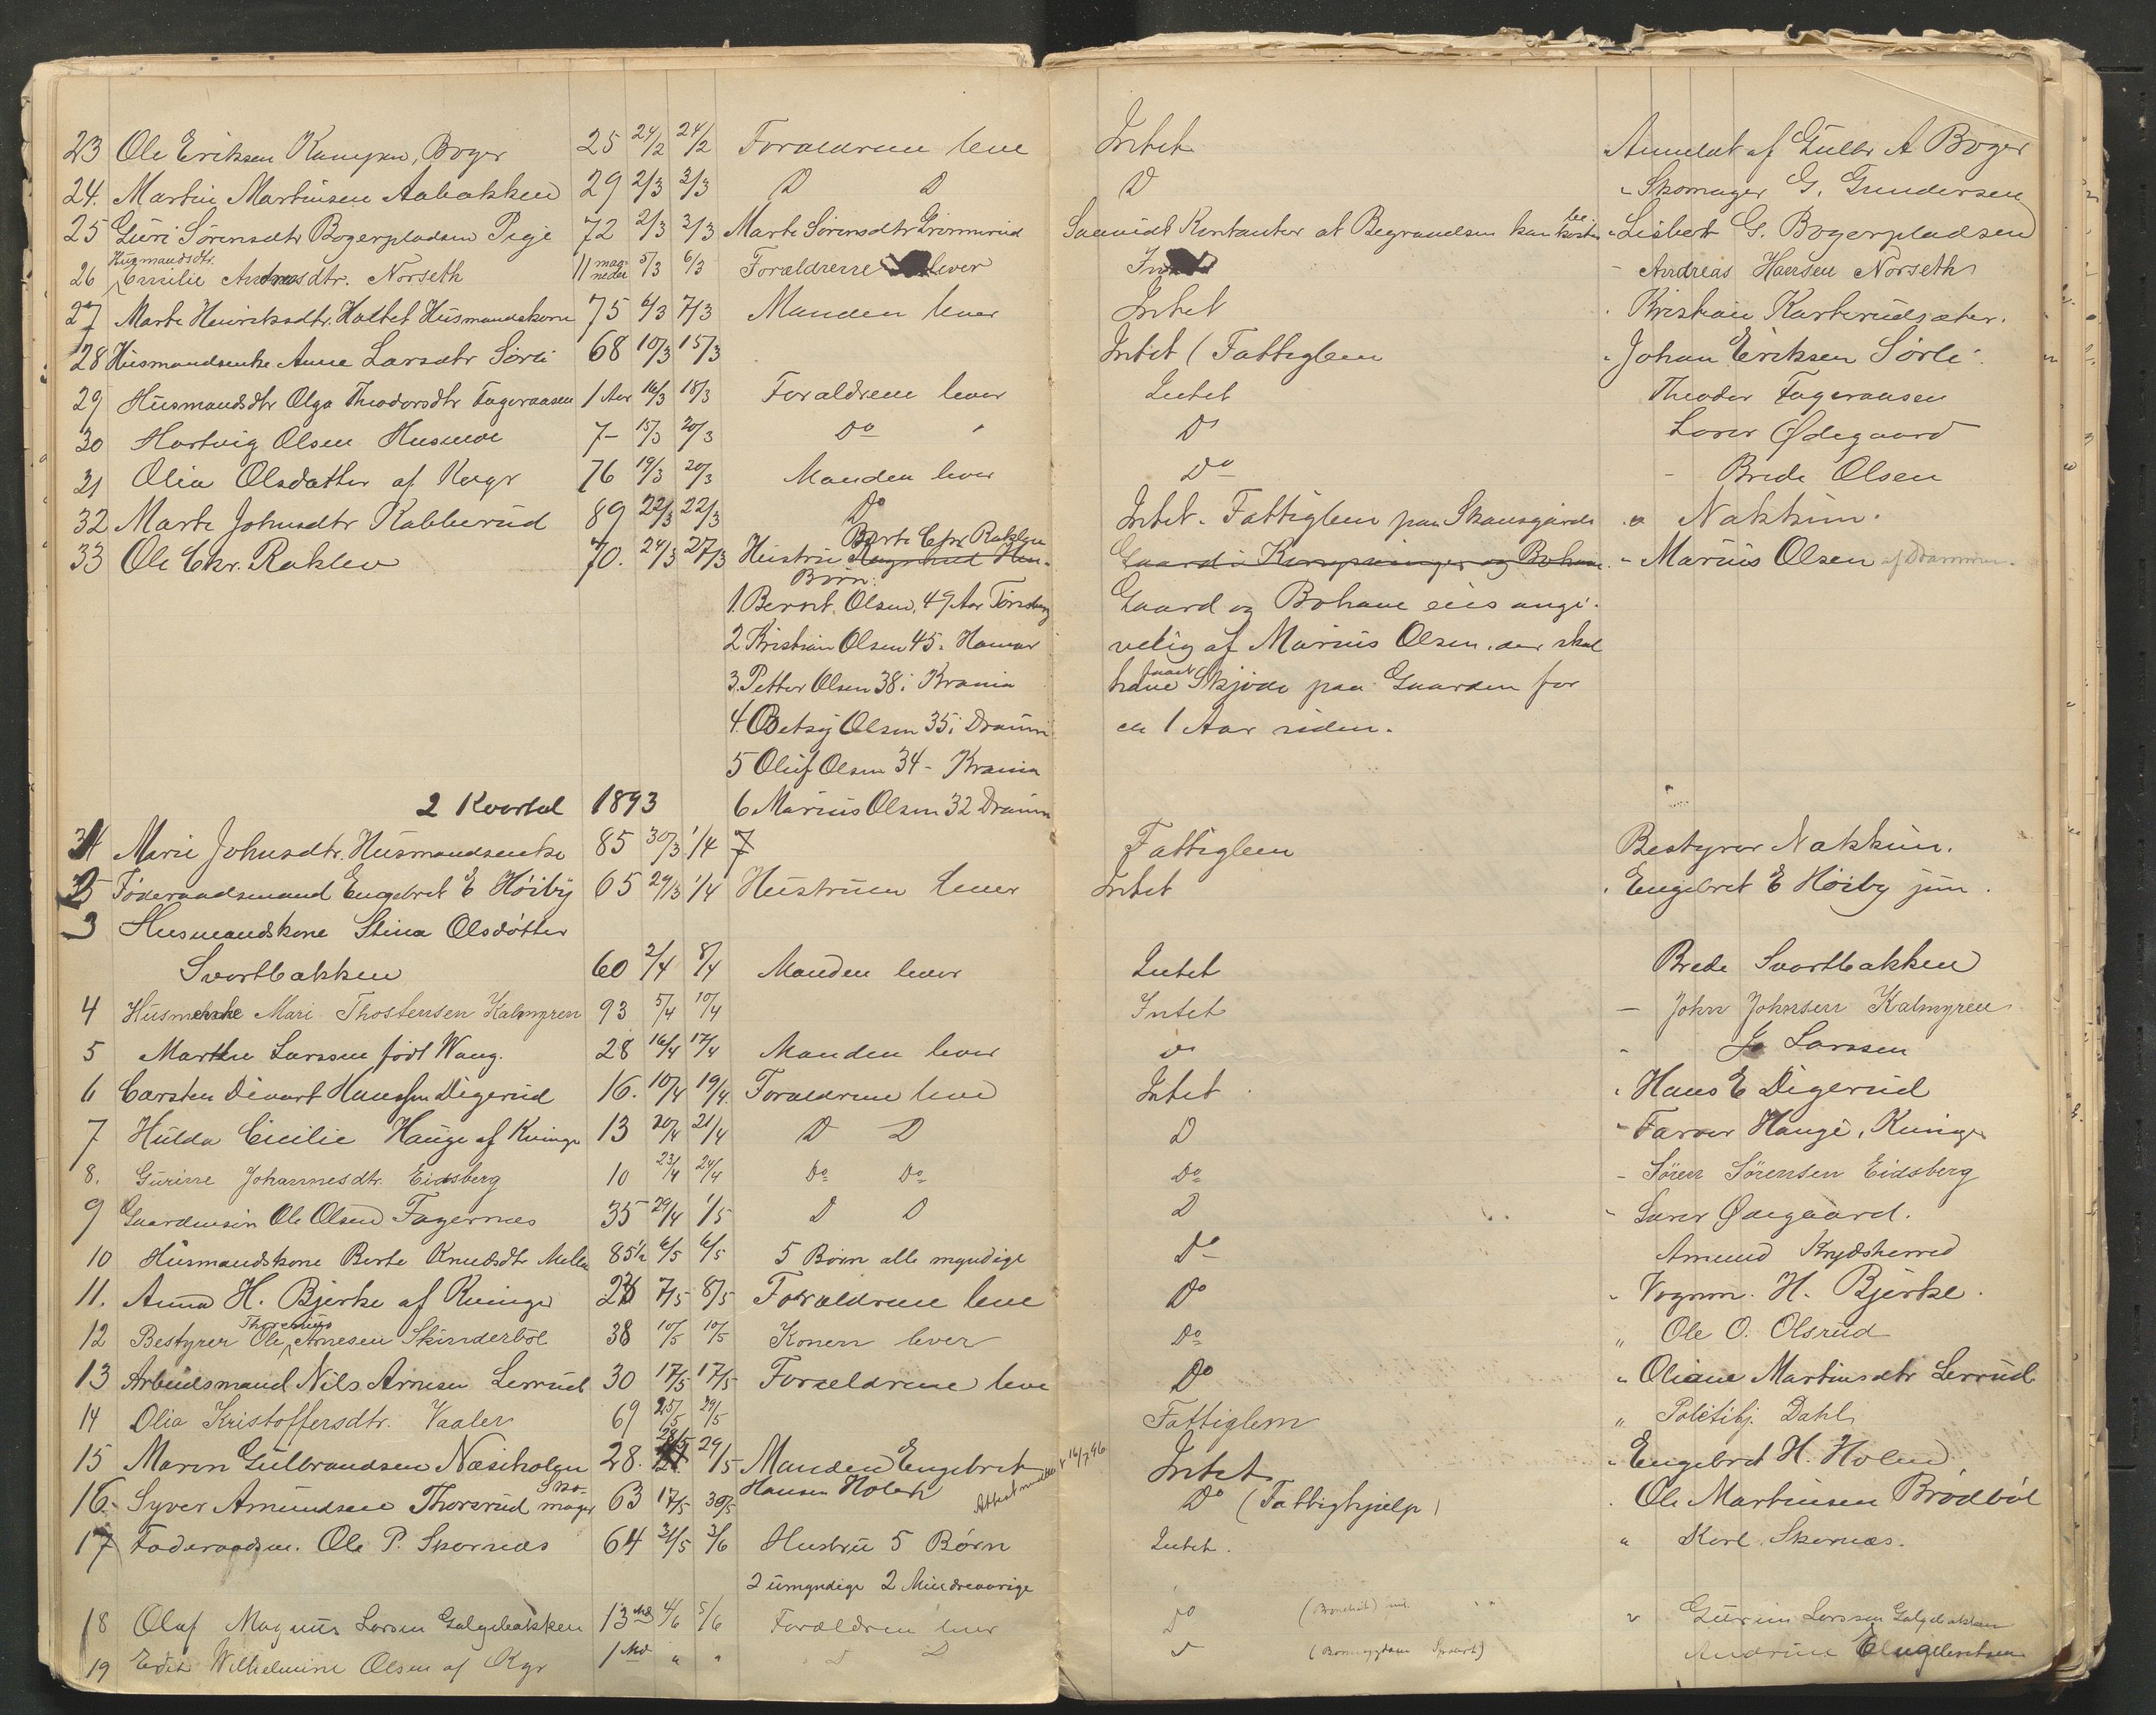 23 Ole Eriksen Kampen, Boger 25 24/2 24/2 Forældrene leve Intet Anmeldt af Gulbr A Boger
24. Martin Martinsen Aabakken 29 2/3 3/3 D D D " Skomager G. Gundersen
25 Guri Sørensdtr Bogerpladsen Pige 72 2/3 3/3 Marte Sørensdtr Grønnerud Saavidt Kontanter at Begravelsen kan be koste " Lisbert G. Bogerpladsen
Husmandsdtr.
26 Emilie Andreasdtr. Norseth 11 maaneder 5/3 6/3 Forældrene lever - Andreas Hansen Norseth
27 Marte Henriksdtr. Hattet Husmandskone 75 6/3 7/3 Manden lever Intet Kristian Karterudsæter.
28 Husmandsenke Anne Larsdtr Sørli 68 10/3 15/3 Intet (Fattiglem " Johan Eriksen Sørli
29 Husmandsdtr Olga Theodorsdtr Fageraasen 1 Aar 16/3 18/3 Forældrene lever Intet Theodor Fageraasen
30 Hartvig Olsen Husmoe 7- 15/3 20/3 Do " Do Lører Ødegaard
31 Olia Olsdatter af Kvgr 76 19/3 20/3 Manden lever Do - Brede Olsen
32 Marte Johnsdtr Kabberud 89 22/3 22/3 Do Intet. Fattiglem paa Skansgaarde " Nakkim.
33 Ole Chr. Raklev 70. 24/3 27/3 Hustru Berte Chr Raklev " Marius Olsen af Drammen.
Børn:
1. Bernt. Olsen, 49 Aar Tønsberg Gaard og Bohave eies angi-
2 Kristian Olsen 45. Hamar velig af Marius Olsen, der skal
3. Petter Olsen 38 i Krania have faaet Skjøde paa Gaarden for
4. Betsy Olsen 35 i Dramm ca 1 Aar siden.
5 Oluf Olsen 34 - Krania
2 Kvartal 1893 6 Marius Olsen 32 Dramm
34 Marie Johnsdtr. Husmandsenke 85 30/3 1/4 7 Fattiglem Bestyrer Nakkim.
35 Føderaadsmand Engebret E Høiby 65 29/3 1/4 Hustruen lever Intet " Engebret E Høiby jun.
3 Husmandskone Stina Olsdotter
Svartbakken 60 2/4 8/4 Manden lever Intet Brede Svartbakken
4 Husmenke Mari Thostensen Kalmyren 93 5/4 10/4 Intet - John Johnsen Kalmyren
5 Marthe Larssen født Wang. 28 16/4 17/4 Manden lever do " Jo Larssen
6 Carsten Divart Hanssen Digerud 16. 10/4 19/4. Forældrene leve Intet. " Hans E Digerud
7 Hulda Cicilie Hauge af Kvinge 13 20/4 21/4 D D D " Farver Hauge, Kvinge
8. Gurine Johannesdtr. Eidsberg 10 23/4 24/4 Do Do Do - Søren Sørensen Eidsberg
9 Gaardmsøn Ole Olsen Fagernæs 35 29/4 1/5 D D D " Lærer Ødegaard.
10 Husmandskone Berte Knudsdtr Melle 85½ 6/5 6/5 5 Børn alle myndige Do Amund Krydsherred
11. Anna H. Bjerke af Kvinge 28 7/5 8/5 Forældrene leve Do " Vognm. H. Bjerke.
12 Bestyrer Ole Thorenius Arnesen Skinderbøl 38 10/5 10/5 Konen lever Do " Ole O. Olsrud
13 Arbeidsmand Nils Arnesen Lerrud 30 17/5 17/5 Forældrene leve Do " Oliane Martinsdtr Lerrud
14 Olia Kristoffersdtr. Vaaler 69 25/5 29/5 Fattiglem " Politibj. Dahl
15 Maren Gulbrandsen Næsiholen 28. 28/5 29/5 Manden Engebret Intet " Engebret H. Holen
Hansen Holen
16. Syver Amundsen Thorsrud Skomager 63 17/5 30/5 Do (Fattighjælp) Ole Martinsen Brødbøl
17 Føderaadsm. Ole P. Skornæs 64 31/5 3/6 Hustru 5 Børn Intet. " Karl Skornæs.
2 umyndige 2 Mindreaarige
18 Olaf Magnus Larsen Galgebakken 13 Md 4/6 5/6 Forældren lever Do " Gurim Larssen Galgebakken
19 Edit Wilhelmine Olsen af Kgr 1 Md " " D D D Andrine Engebretsen